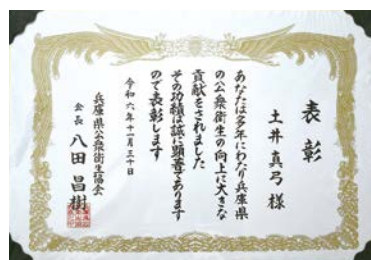 表彰
土井真弓様
あなたは多年にわたり兵庫県
の公衆衛生の向上に大きな
貢献をされました
その功績は誠に顕著であります
ので表彰します
令和六年十一月三十日
兵庫県公衆衛生協会
会長 八田昌樹